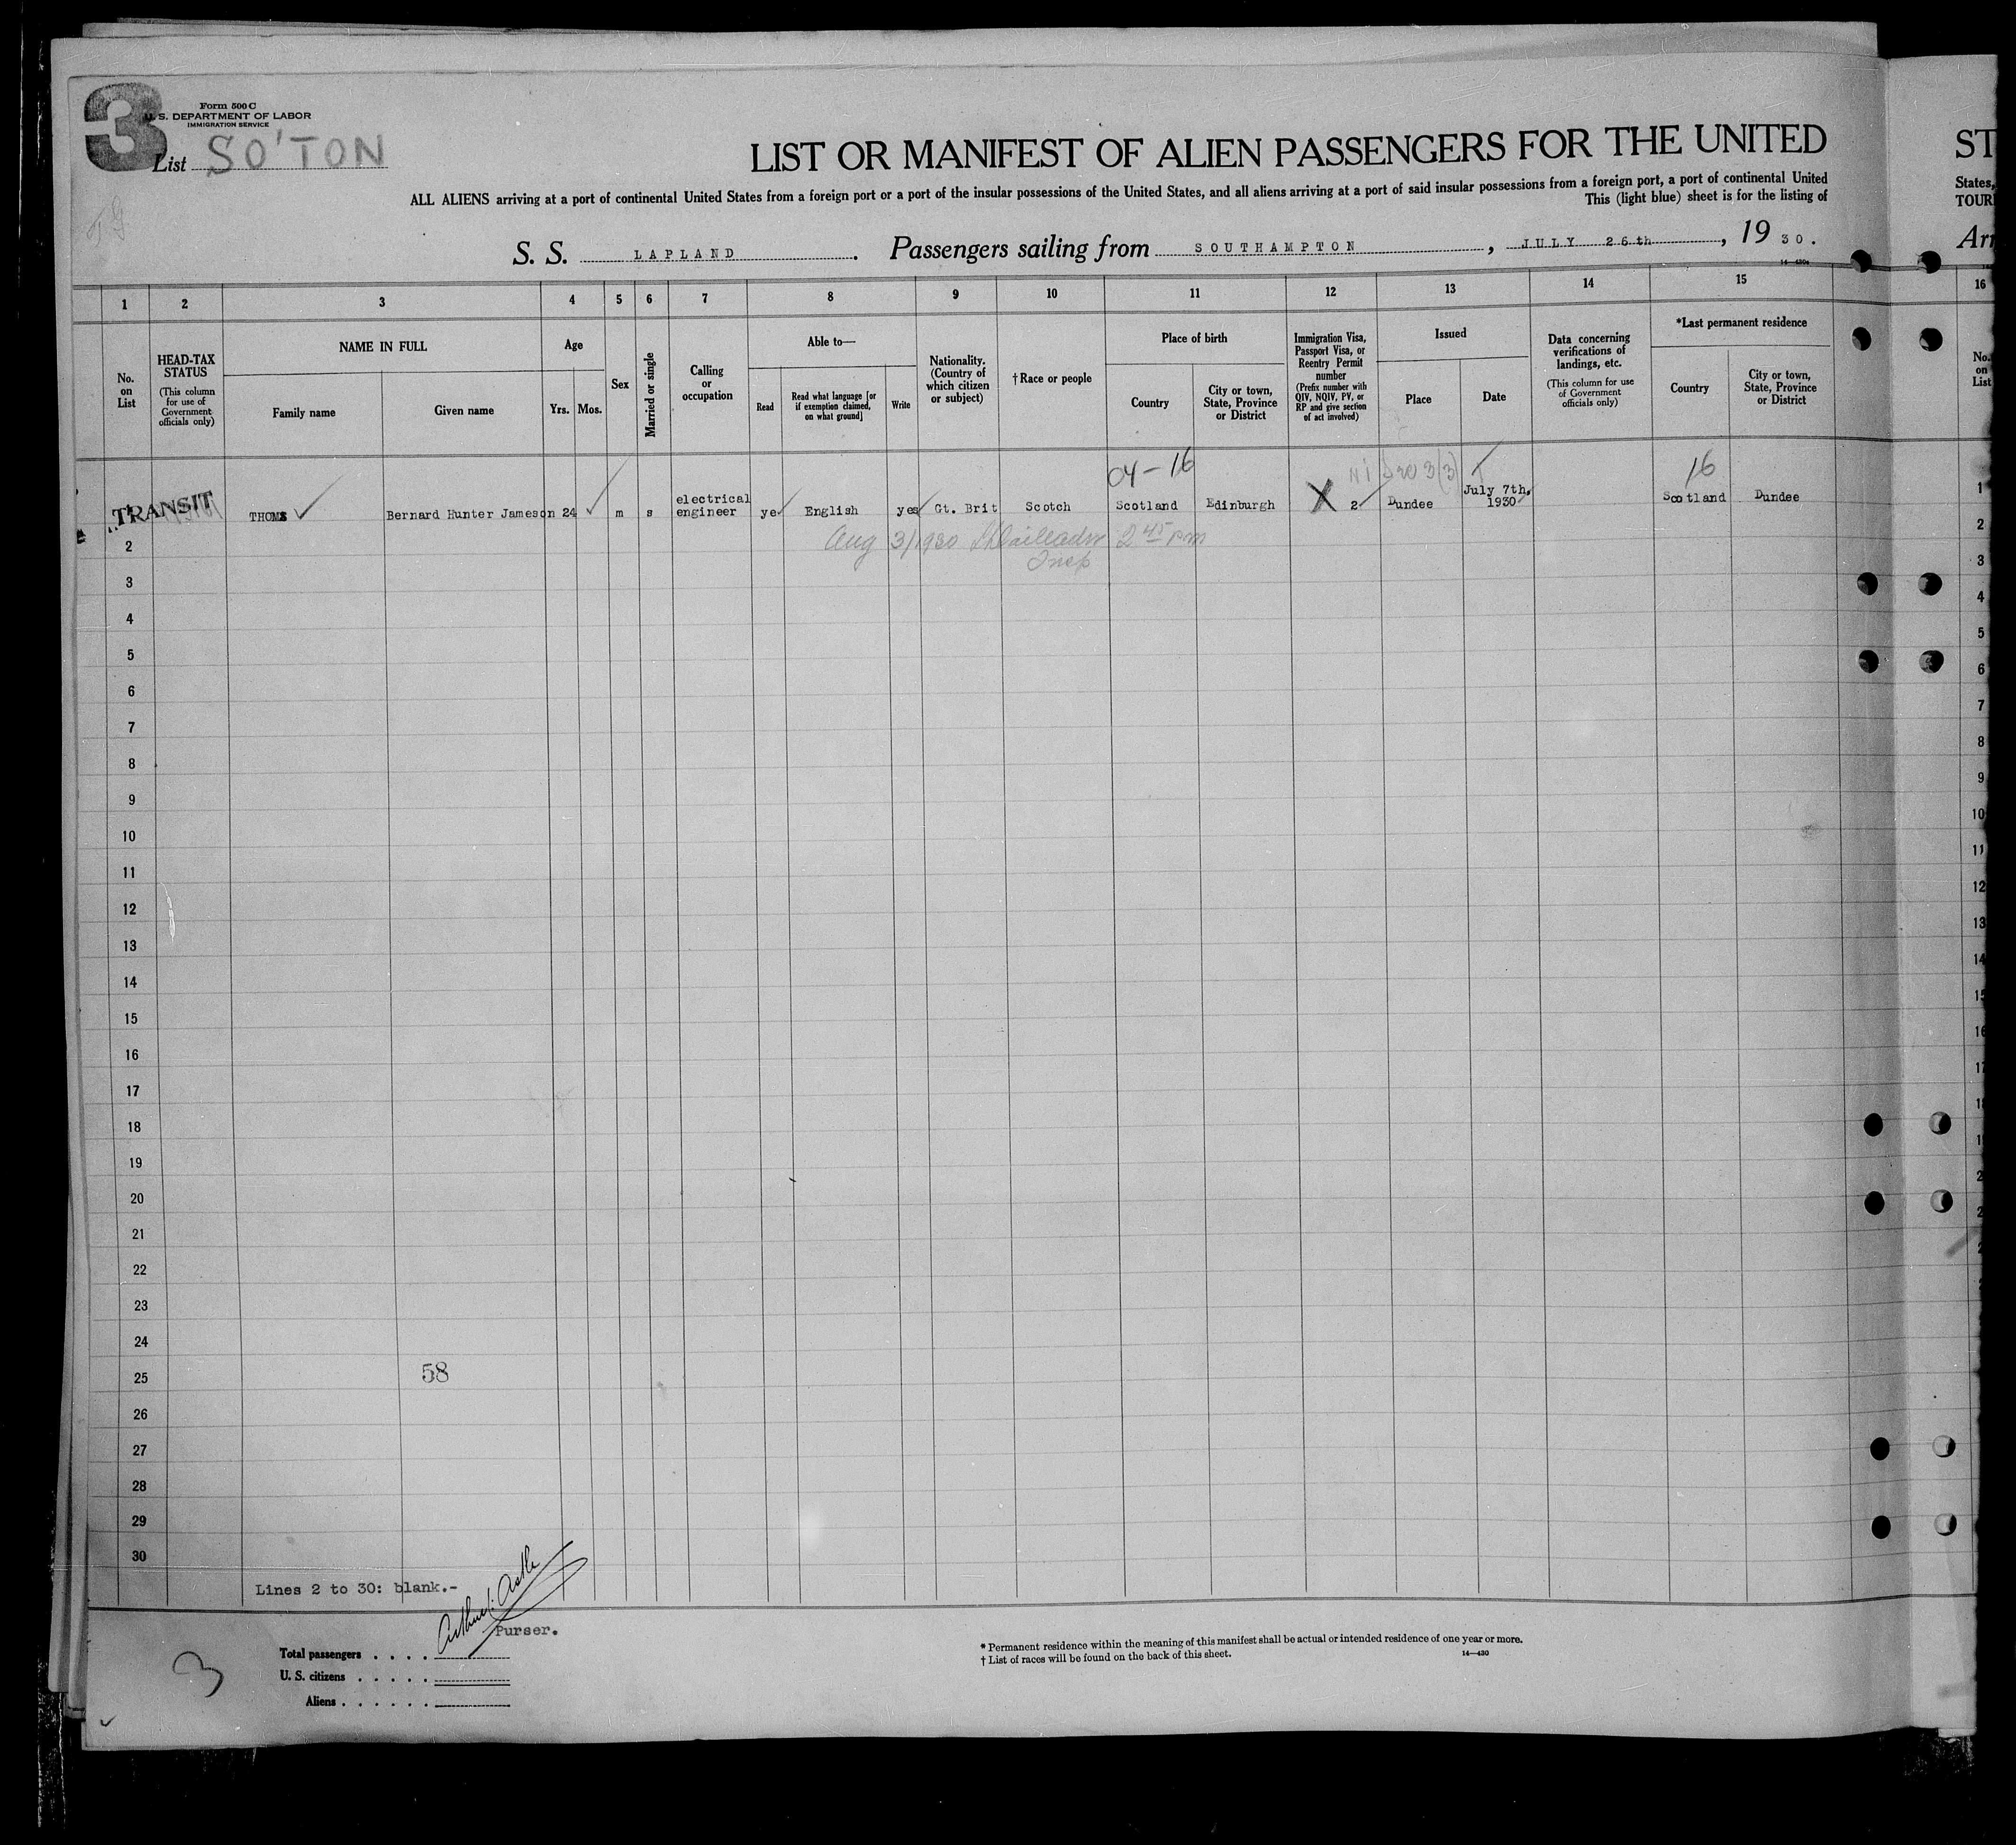 3
Form 500 C
U. S. DEPARTMENT OF LABOR
IMMIGRATION SERVICE
List SO'TON
LIST OR MANIFEST OF ALIEN PASSENGERS FOR THE UNITED
ALL ALIENS arriving at a port of continental United States from a foreign port or a port of the insular possessions of the United States, and all aliens arriving at a port of said insular possessions from a foreign port, a port of continental United
This (light blue) sheet is for the listing of
S. S. LAPLAND. Passengers sailing from SOUTHAMPTON, JULY 26th, 19 30.
ST
States,
TOUR
Arr
1 2 3 4 5 6 7 8 9 10 11 12 13 14 15 16
No. on List
HEAD-TAX STATUS
(This column for use of Government officials only)
NAME IN FULL
Family name Given name
Age
Yrs. Mos.
Sex
Married or single
Calling or occupation
Able to—
Read
Read what language [or if exemption claimed, on what ground]
Write
Nationality. (Country of which citizen or subject)
† Race or people
Place of birth
Country
City or town, State, Province or District
Immigration Visa, Passport Visa, or Reentry Permit number
(Prefix number with QIV, NQIV, PV, or RP and give section of act involved)
Issued
Place Date
Data concerning verifications of landings, etc.
(This column for use of Government officials only)
*Last permanent residence
Country
City or town, State, Province or District
No. on List
04-16 3(3) 16
TRANSIT THOMS Bernard Hunter Jameson 24 m s electrical engineer yes English yes Gt. Brit Scotch Scotland Edinburgh X 2 Dundee July 7th, 1930 Scotland Dundee
Aug 3/1930 2 45 pm
Insp
1
2
3
4
5
6
7
8
9
10
11
12
13
14
15
16
17
18
19
20
21
22
23
24
25
26
27
28
29
30
58
Lines 2 to 30: blank.-
Purser.
Total passengers . . . .
U. S. citizens . . . . .
Aliens . . . . . .
3
* Permanent residence within the meaning of this manifest shall be actual or intended residence of one year or more.
† List of races will be found on the back of this sheet.
14—430